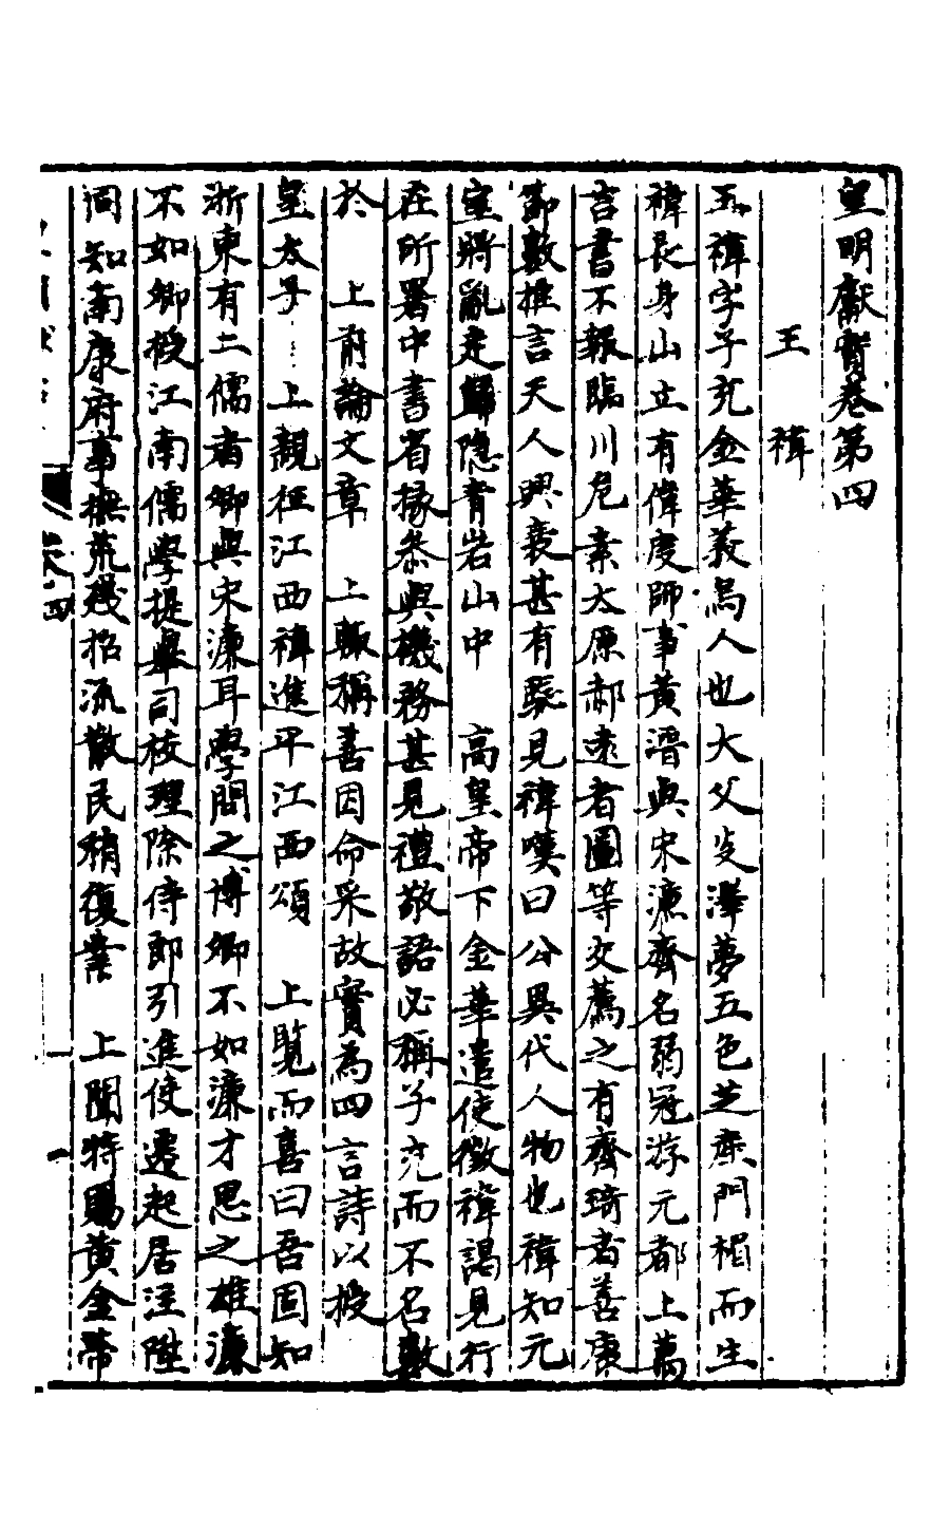 皇明獻實卷第四
王禕
王禕字子充金華義烏人也大父炎澤夢五色芝産門楣而生
禕長身山立有偉度師事黃溍與宋濂齊名弱冠游元都上萬
言書不報臨川危素太原郝逺者圖等交薦之有齊琦者善康
節數推言天人興衰甚有驗見禕嘆曰公異代人物也禕知元
室將亂走歸隐青岩山中　高皇帝下金華遣使徵禕謁見行
在所署中書省掾叅與機務甚見禮敬語必稱子充而不名數
於　上前論文章　上輙稱善因命采故實為四言詩以授
皇太子　上親征江西禕進平江西頌　上覧而喜曰吾固知
浙東有二儒者卿與宋濂耳學問之博卿不如濂才思之雄濂
不如卿授江南儒學提舉司校理除侍郎引進使遷起居注陞
同知南康府事撫荒殘招流散民稍復業　上聞特賜黃金帶
卷四